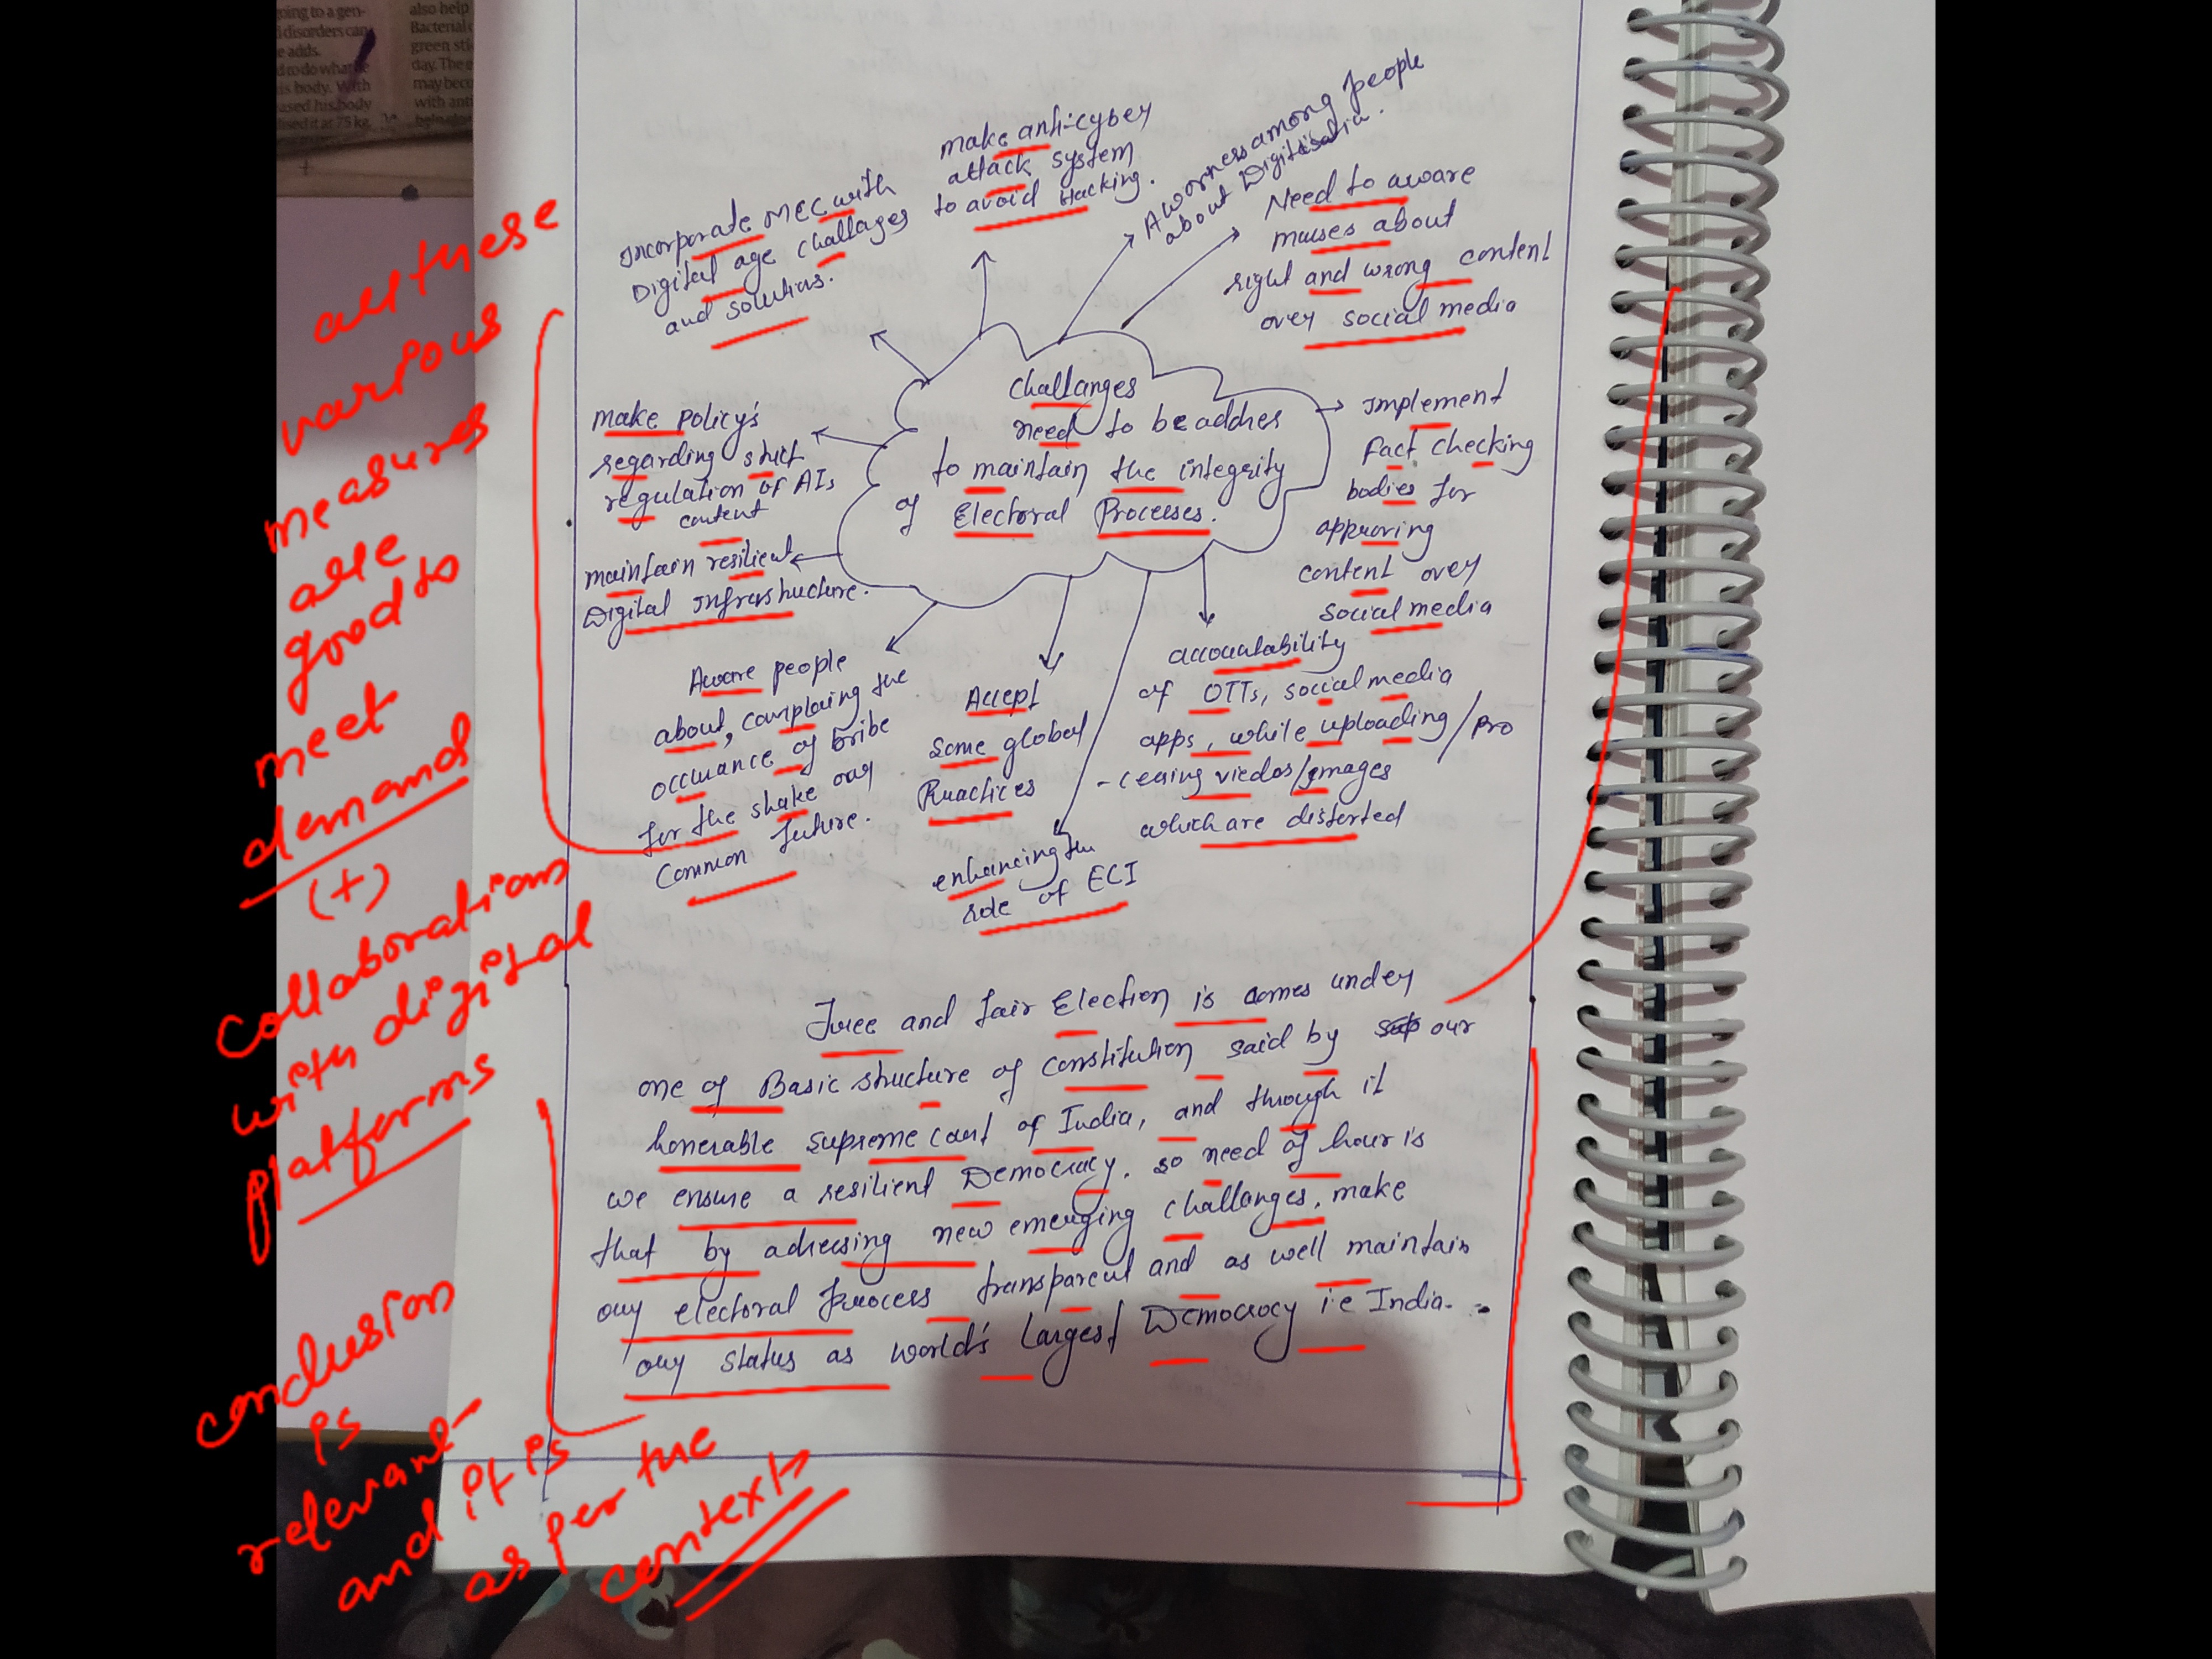 going to a gen-
disorders can
e adds.
d to do what he
is body. With
ased his body
lised it at 75 kg.
also help
Bacterial
green sti
day. The e
may beco
with anti
make anti-cybey
attack system
to avoid Hacking.
Awarness among people
about Digitisatia.
Incorporate MCC with
Digital age challages
and solutins.
Need to aware
masses about
right and wrong content
ovey social media
challanges
need to be addres
to maintain the integrity
of Electoral Processes.
make policy's
regarding strict
regulation of AIs
content
Implement
Fact checking
bodies for
approving
content ovey
social media
maintain resilient
Digital Infrastructure.
Aware people
about, complaing the
occurance of bribe
for the shake ouy
common future.
Accept
some global
Practices
accountability
of OTTs, social media
apps, while uploading/pro
-cessing viedos/images
which are distorted
enhancing the
role of ECI
Free and fair Election is comes undey
one of Basic structure of constitution said by our
honerable supreme court of India, and through it
we ensure a resilient Democracy. so need of hour is
that by adressing new emerging challanges, make
ouy electoral process transparent and as well maintain
ouy status as world's largest Democracy i.e India.
all these
various
measures
are
good to
meet
demand
(+)
collaboration
with digital
platforms
conclusion
is
relevant
and it is
as per the
context